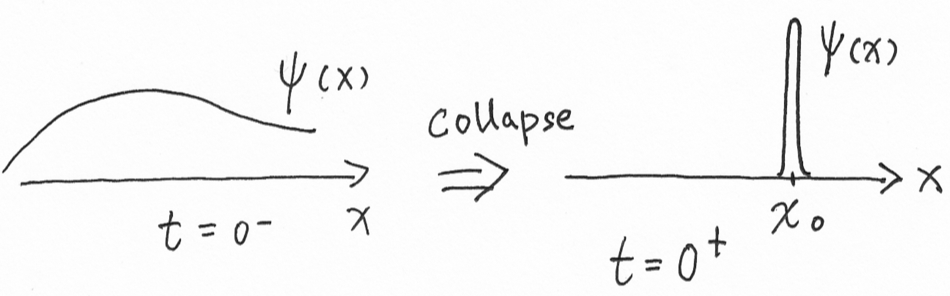 ψ(x)
x
t = 0⁻
collapse
⇒
ψ(x)
x
x₀
t = 0⁺